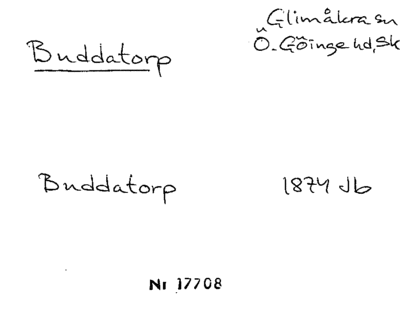 Glimåkra sn
Buddatorp Ö. Göinge hd, Sk
Buddatorp 1874 Jb
Nr 17708